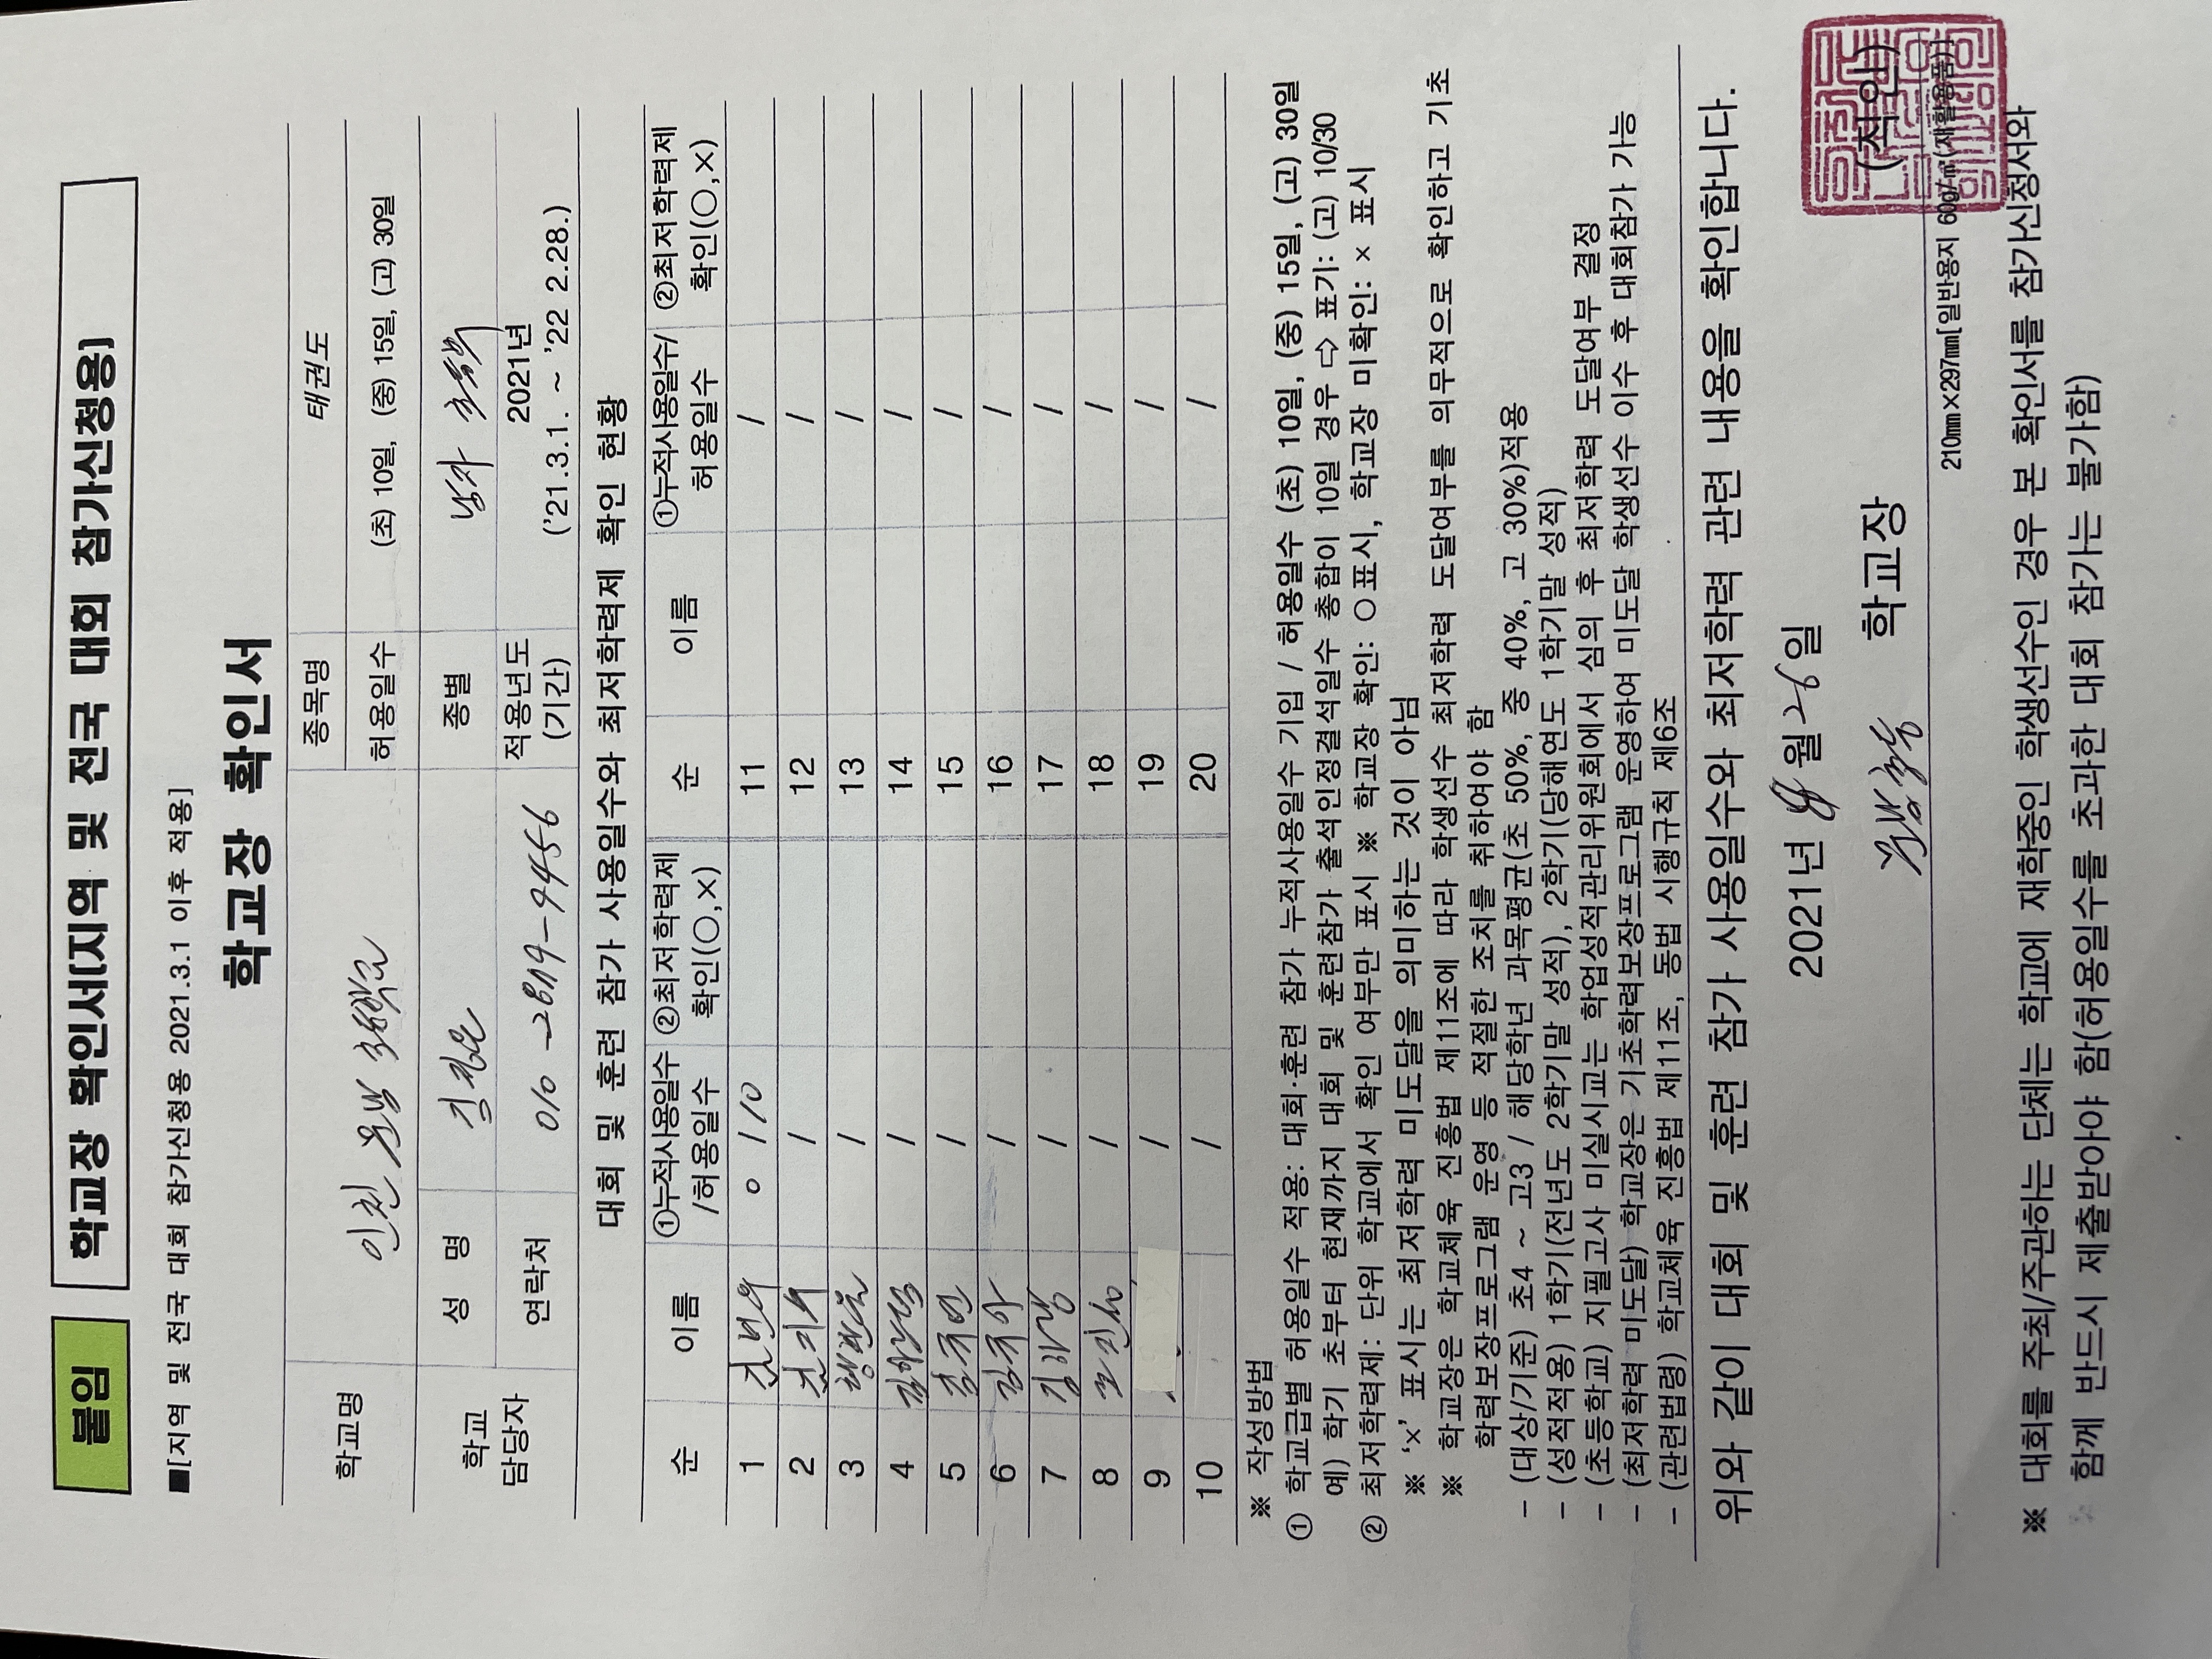 붙임
학교장 확인서[지역 및 전국 대회 참가신청용]
■[지역 및 전국 대회 참가신청용 2021.3.1 이후 적용]
학교장 확인서
학교명 인천 종목명 태권도
허용일수 (초) 10일, (중) 15일, (고) 30일
학교 담당자 성 명 종별 남자
연락처 010 적용년도 (기간) 2021년 ('21.3.1. ~ '22 2.28.)
대회 및 훈련 참가 사용일수와 최저학력제 확인 현황
순 이름 ①누적사용일수 /허용일수 ②최저학력제 확인(○,×) 순 이름 ①누적사용일수/ 허용일수 ②최저학력제 확인(○,×)
1 0 / 10 11 /
2 / 12 /
3 / 13 /
4 / 14 /
5 / 15 /
6 / 16 /
7 / 17 /
8 / 18 /
9 / 19 /
10 / 20 /
※ 작성방법
① 학교급별 허용일수 적용: 대회·훈련 참가 누적사용일수 기입 / 허용일수 (초) 10일, (중) 15일, (고) 30일
예) 학기 초부터 현재까지 대회 및 훈련참가 출석인정결석일수 총합이 10일 경우 ⇨ 표기: (고) 10/30
② 최저학력제: 단위 학교에서 확인 여부만 표시 ※ 학교장 확인: ○표시, 학교장 미확인: × 표시
※ 'x' 표시는 최저학력 미도달을 의미하는 것이 아님
※ 학교장은 학교체육 진흥법 제11조에 따라 학생선수 최저학력 도달여부를 의무적으로 확인하고 기초
학력보장프로그램 운영 등 적절한 조치를 취하여야 함
- (대상/기준) 초4 ~ 고3 / 해당학년 과목평균(초 50%, 중 40%, 고 30%)적용
- (성적적용) 1학기(전년도 2학기말 성적), 2학기(당해연도 1학기말 성적)
- (초등학교) 지필고사 미실시교는 학업성적관리위원회에서 심의 후 최저학력 도달여부 결정
- (최저학력 미도달) 학교장은 기초학력보장프로그램 운영하여 미도달 학생선수 이수 후 대회참가 가능
- (관련법령) 학교체육 진흥법 제11조, 동법 시행규칙 제6조
위와 같이 대회 및 훈련 참가 사용일수와 최저학력 관련 내용을 확인합니다.
2021년 월 26일
학교장 (직인)
210㎜×297㎜[일반용지 60g/㎡(재활용품)]
※ 대회를 주최/주관하는 단체는 학교에 재학중인 학생선수인 경우 본 확인서를 참가신청서와
함께 반드시 제출받아야 함(허용일수를 초과한 대회 참가는 불가함)